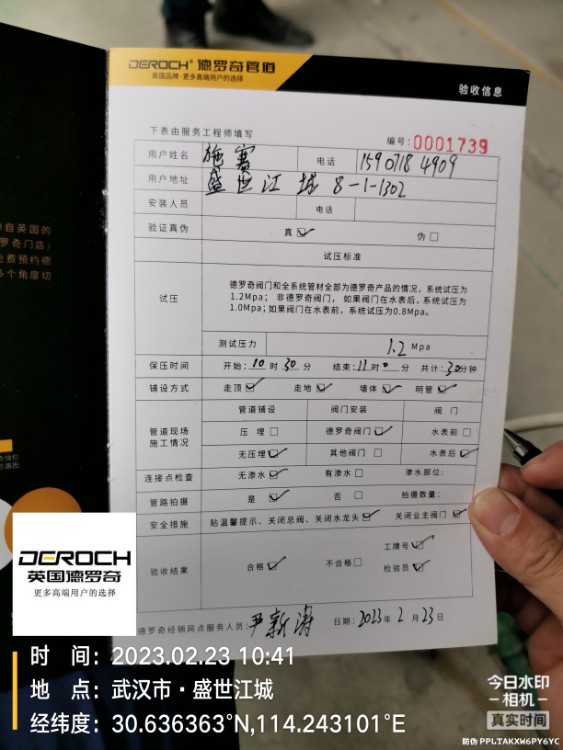 DEROCH® 德罗奇管道
英国品牌·更多高端用户的选择
验收信息
下表由服务工程师填写
编号:0001739
用户姓名 施赛 电话 15907184909
用户地址 盛世江城 8-1-1302
安装人员 电话
验证真伪 真☑ 伪□
试压标准
试压 德罗奇阀门和全系统管材全部为德罗奇产品的情况,系统试压为
1.2Mpa; 非德罗奇阀门, 如果阀门在水表后,系统试压为
1.0Mpa;如果阀门在水表前,系统试压为0.8Mpa。
测试压力 1.2 Mpa
保压时间 开始:10时30分 结束:11时0分 共计:30分钟
铺设方式 走顶☑ 走地☑ 墙体☑ 明管☑
管道现场
施工情况
管道铺设 阀门安装 阀门
压埋□ 德罗奇阀门☑ 水表前□
无压埋☑ 其他阀门□ 水表后☑
连接点检查 无渗水☑ 有渗水□ 渗水部位:
管路拍摄 是☑ 否□ 拍摄数量:
安全措施 贴温馨提示、关闭总阀、关闭水龙头☑ 关闭业主阀门☑
验收结果 合格☑ 不合格□ 工牌号☑
检验员☑
德罗奇经销网点服务人员:尹新涛 日期:2023年2月23日
源自英国的
罗奇门店/
免费预约德
多个角度切
DEROCH
英国德罗奇
更多高端用户的选择
时 间:2023.02.23 10:41
地 点:武汉市·盛世江城
经纬度:30.636363°N,114.243101°E
今日水印
-相机-
真实时间
防伪 PPLTAKXW6PY6YC